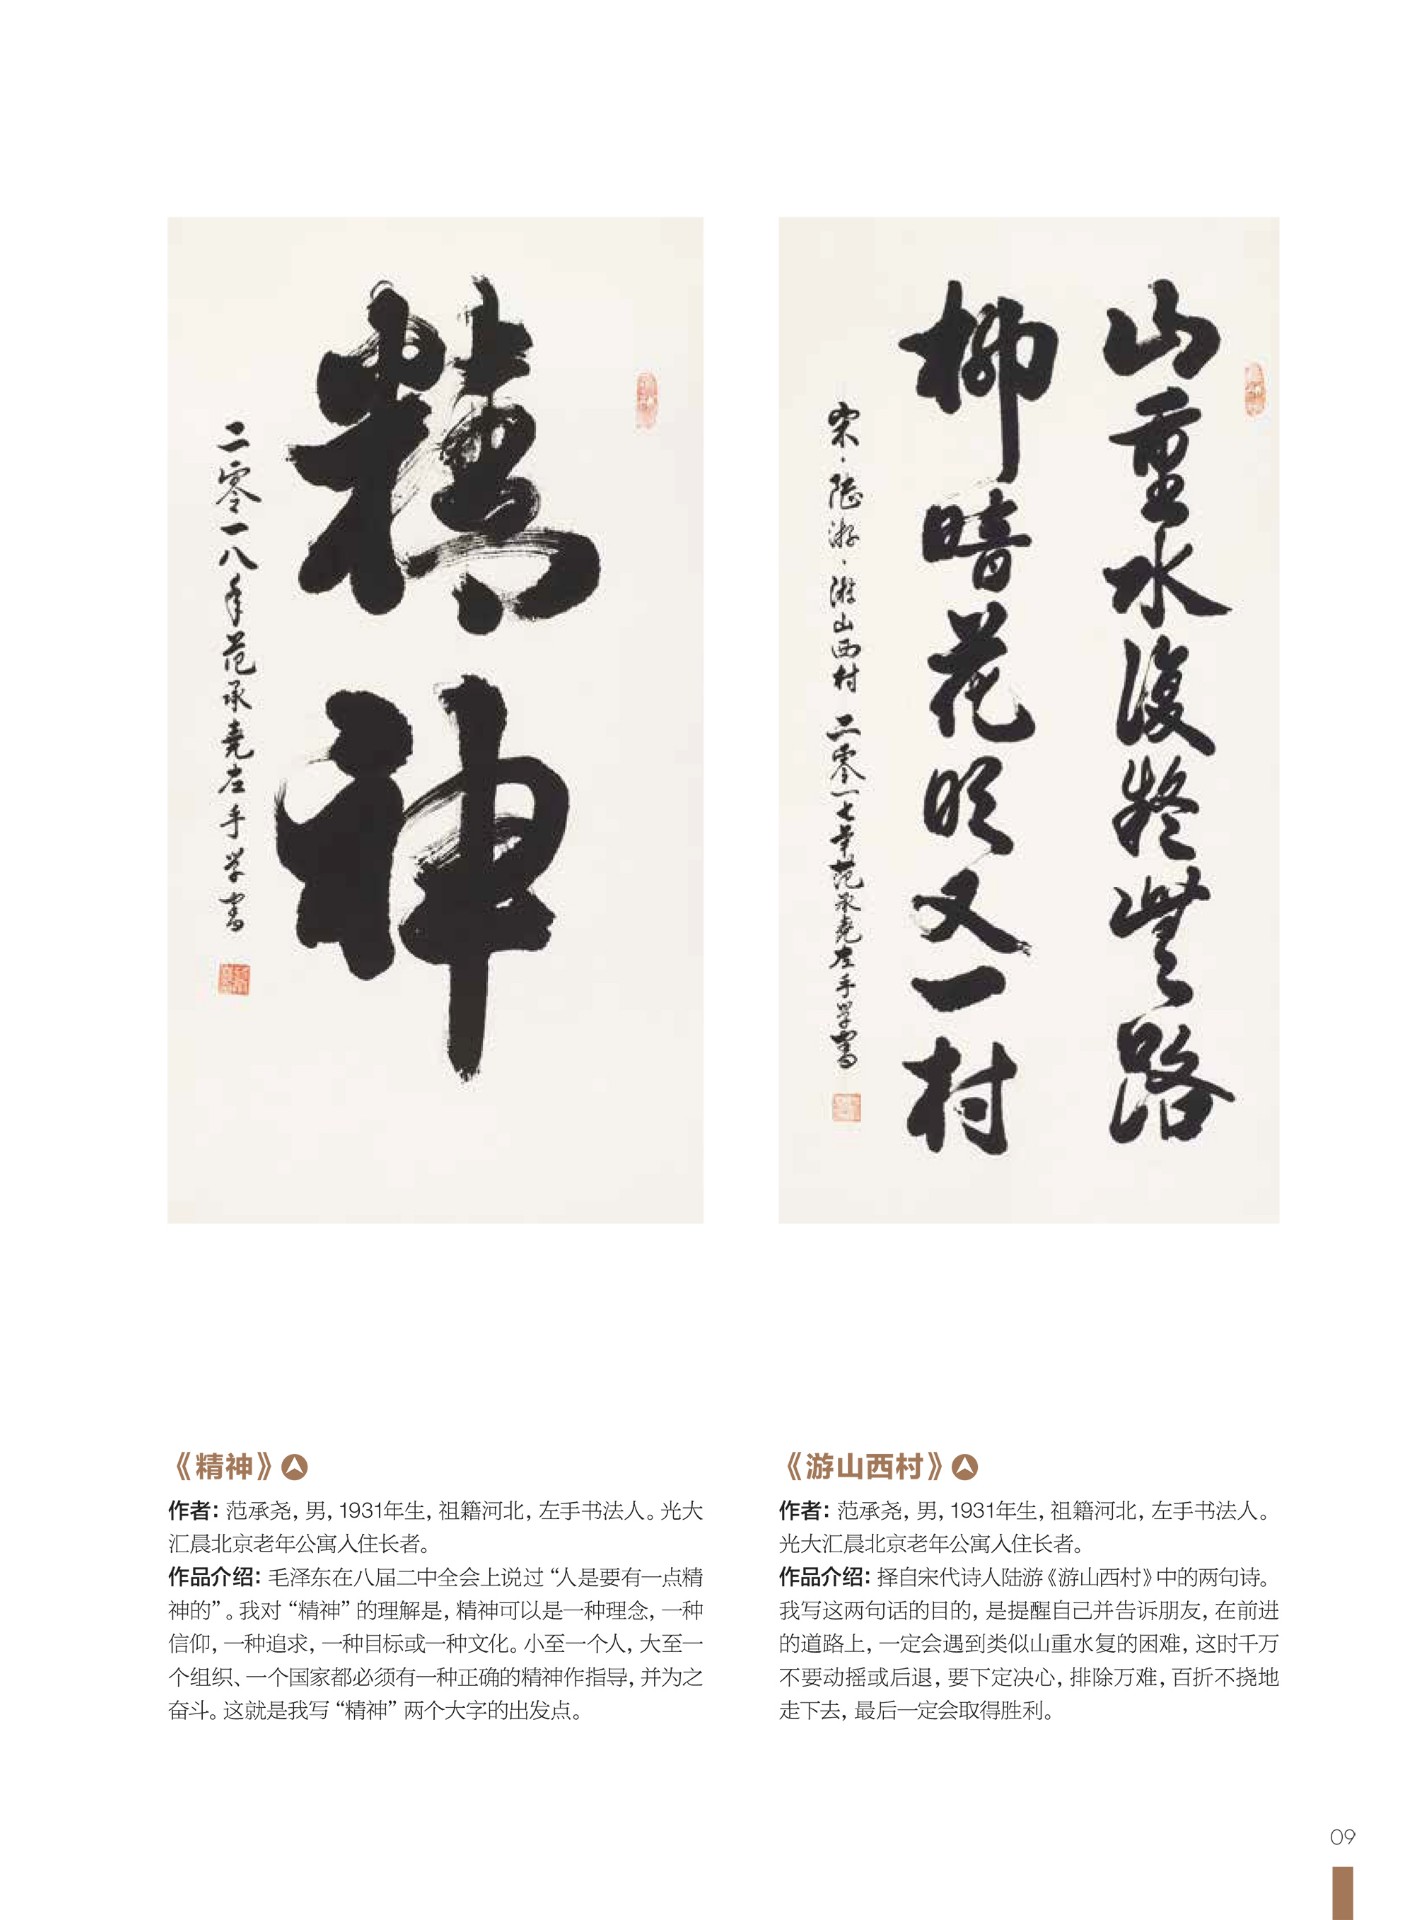 精神
二零一八年范承堯左手学書
山重水複疑無路
柳暗花明又一村
宋·陸游·游山西村 二零一七年范承堯左手学書
《精神》
作者：范承尧，男，1931年生，祖籍河北，左手书法人。光大
汇晨北京老年公寓入住长者。
作品介绍：毛泽东在八届二中全会上说过“人是要有一点精
神的”。我对“精神”的理解是，精神可以是一种理念，一种
信仰，一种追求，一种目标或一种文化。小至一个人，大至一
个组织、一个国家都必须有一种正确的精神作指导，并为之
奋斗。这就是我写“精神”两个大字的出发点。
《游山西村》
作者：范承尧，男，1931年生，祖籍河北，左手书法人。
光大汇晨北京老年公寓入住长者。
作品介绍：择自宋代诗人陆游《游山西村》中的两句诗。
我写这两句话的目的，是提醒自己并告诉朋友，在前进
的道路上，一定会遇到类似山重水复的困难，这时千万
不要动摇或后退，要下定决心，排除万难，百折不挠地
走下去，最后一定会取得胜利。
09